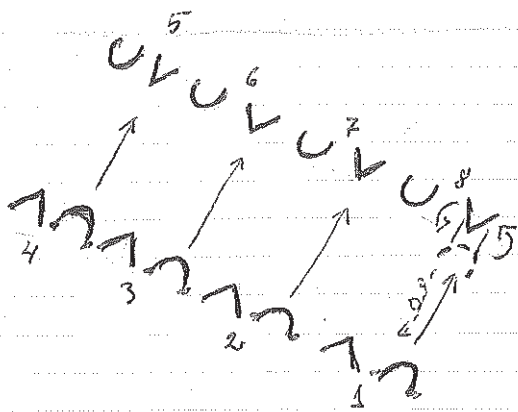 5
6
7
8
4
3
2
1